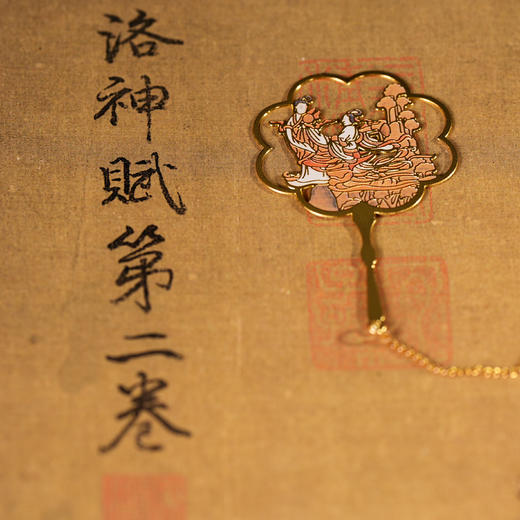 洛神賦第二卷